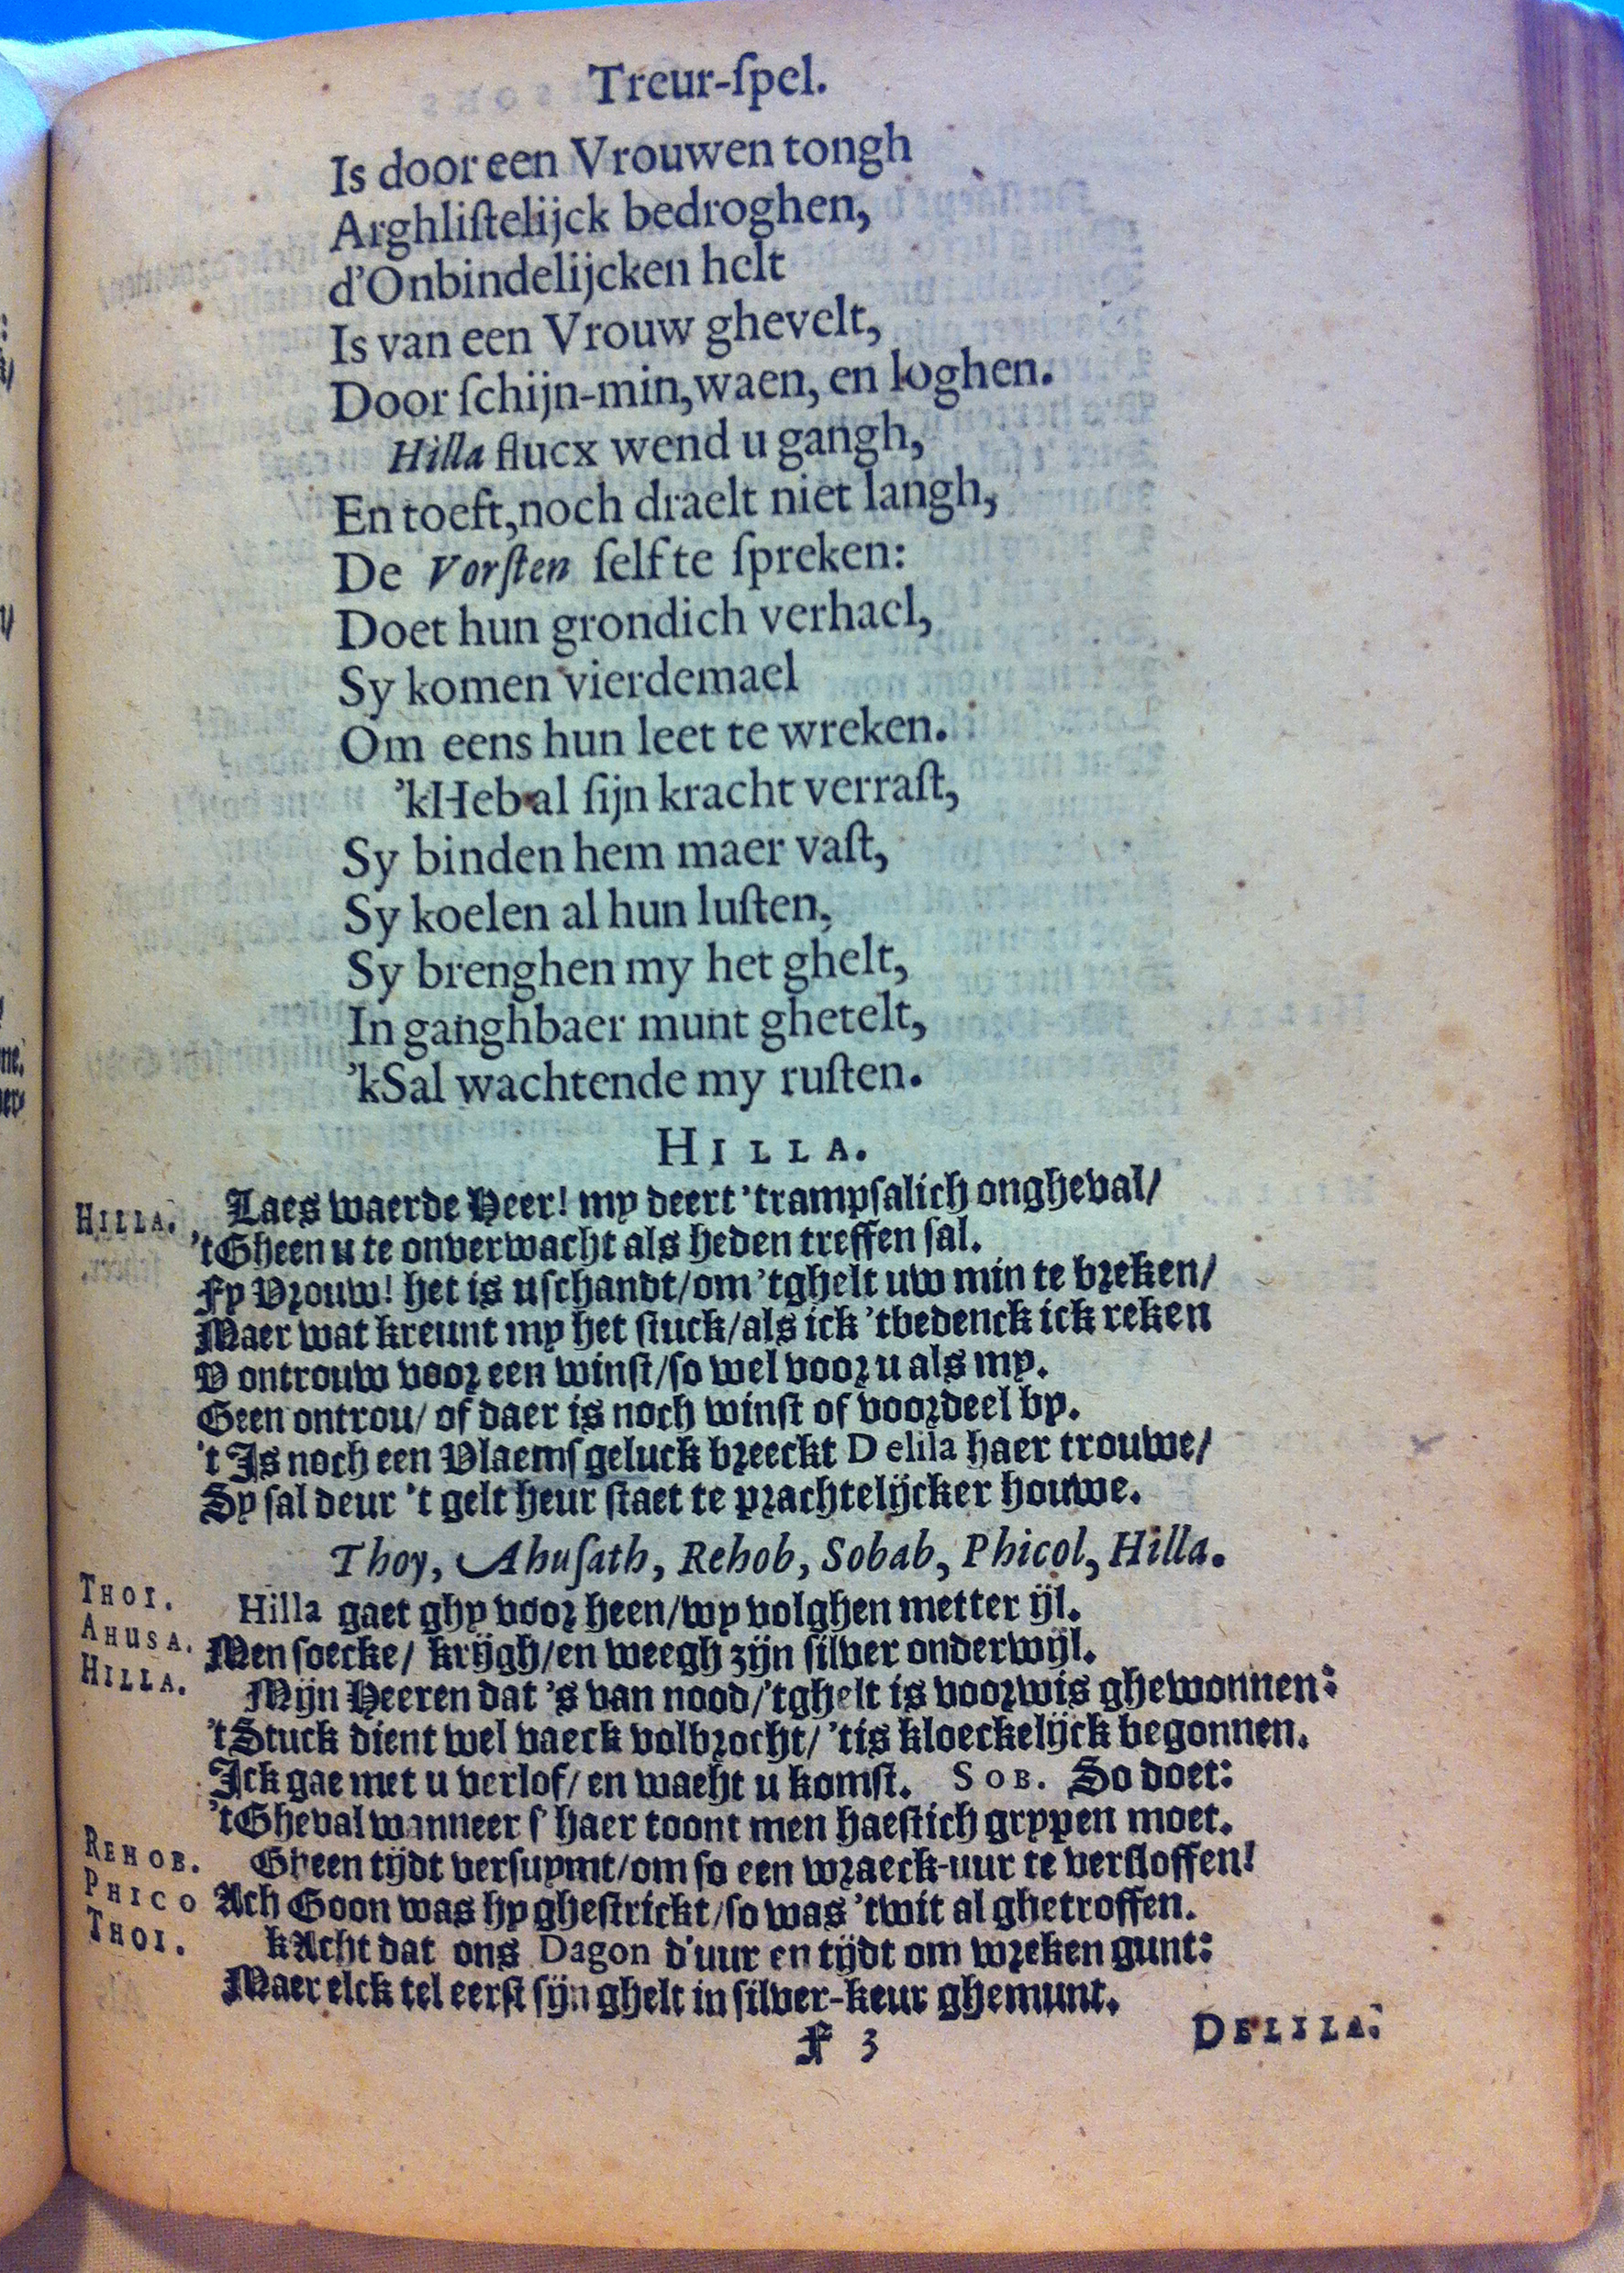 Treur-ſpel.
Is door een Vrouwen tongh
Arghliſtelijck bedroghen,
d'Onbindelijcken helt
Is van een Vrouw ghevelt,
Door ſchijn-min, waen, en loghen.
Hilla flucx wend u gangh,
En toeft, noch draelt niet langh,
De Vorſten ſelf te ſpreken:
Doet hun grondich verhael,
Sy komen vierdemael
Om eens hun leet te wreken.
'kHeb al ſijn kracht verraſt,
Sy binden hem maer vaſt,
Sy koelen al hun luſten,
Sy brenghen my het ghelt,
In ganghbaer munt ghetelt,
'kSal wachtende my ruſten.
HILLA.
HILLA. Laes waerde Heer! my deert 'trampſalich ongheval/
'tGheen u te onverwacht als heden treffen ſal.
Fy Vrouw! het is u ſchandt/om 'tghelt uw min te breken/
Maer wat kreunt my het ſtuck/als ick 'tbedenck ick reken
V ontrouw voor een winſt/ſo wel voor u als my.
Geen ontrou/ of daer is noch winſt of voordeel by.
't Is noch een Vlaemſ geluck breeckt Delila haer trouwe/
Sy ſal deur 't gelt heur ſtaet te prachtelijcker houwe.
Thoy, Ahuſath, Rehob, Sobab, Phicol, Hilla.
THOI. Hilla gaet ghy voor heen/wy volghen metter ijl.
AHUSA. Men ſoecke/ krijgh/en weegh zijn ſilver onderwijl.
HILLA. Mijn Heeren dat 's van nood/'tghelt is voorwis ghewonnen:
'tStuck dient wel vaeck volbrocht/ 'tis kloeckelijck begonnen.
Ick gae met u verlof/ en wacht u komſt. SOB. So doet:
'tGheval wanneer ſ' haer toont men haeſtich grypen moet.
REHOB. Gheen tijdt verſuymt/om ſo een wraeck-uur te verſloffen!
PHICO Ach Goon was hy gheſtrickt/ſo was 'twit al ghetroffen.
THOI. kAcht dat ons Dagon d'uur en tijdt om wreken gunt:
Maer elck tel eerſt ſijn ghelt in ſilver-keur ghemunt.
F 3
DELILA.